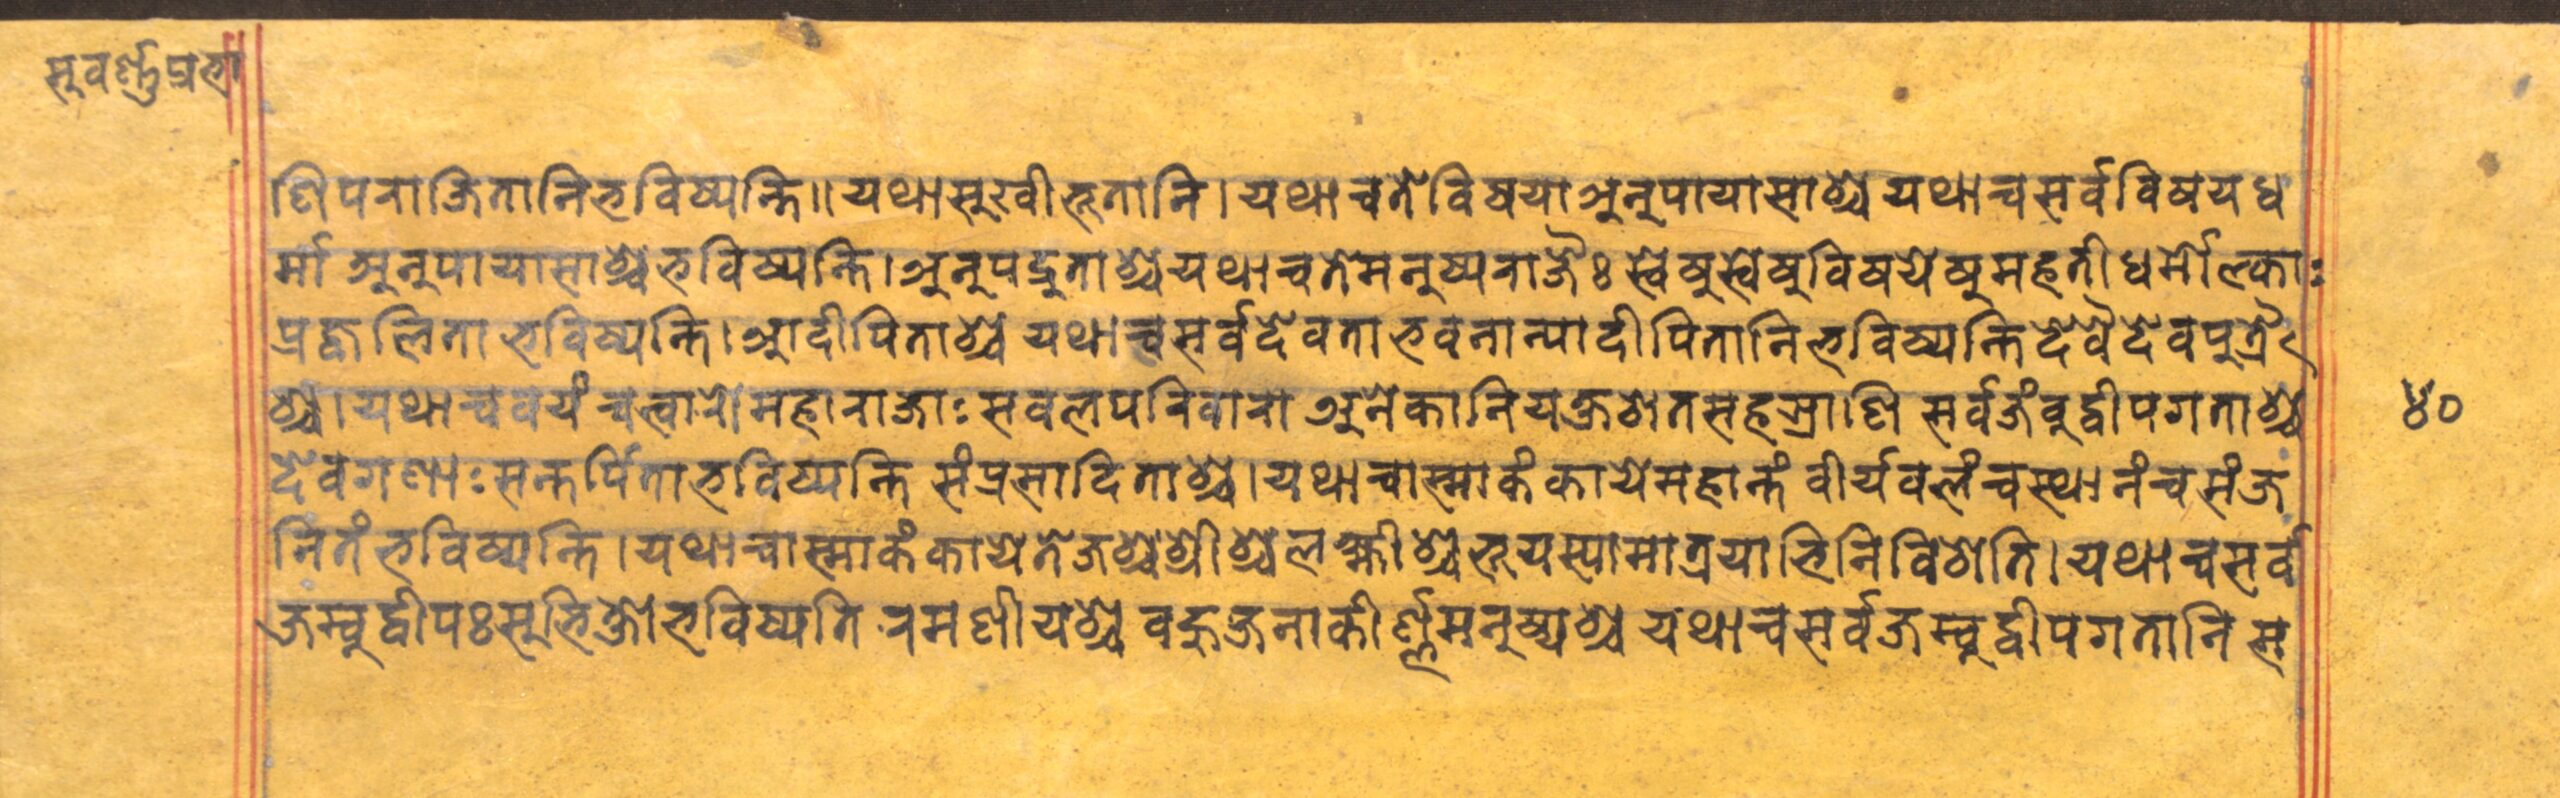 सुवर्ण्णप्रभा
णि पराजितानि भविष्यन्ति॥ यथा सुखीभूतानि। यथा च ते विषया अनुपायासाश्च यथा च सर्वविषयध
र्मा अनुपायासाश्च भविष्यन्ति। अनुपद्रुताश्च यथा च ते मनुष्यराजैः स्वेषु स्वेषु विषयेषु महती धर्मोल्काः
प्रज्वलिता भविष्यन्ति। आदीपिताश्च यथा च सर्वदेवताभवनान्यादीपितानि भविष्यन्ति देवै देवपुत्रै
श्च। यथा च वयं चत्वारो महाराजाः सवलपरिवारा अनेकानि यक्षशतसहस्राणि सर्वजंवुद्वीपगताश्च
४०
देवगणाः सन्तर्पिता भविष्यन्ति संप्रसादिताश्च। यथा चास्माकं काये महान्तं वीर्यवलं च स्थानं च संज
नितं भविष्यन्ति। यथा चास्माकं काये तेजश्च श्रीश्च लक्ष्मीश्च भूयस्या मात्रयाभिनिविशेति। यथा च सर्व
जम्वुद्वीपः सुभिक्षो भविष्यति रमणीयश्च वहुजनाकीर्ण्णमनुष्यश्च यथा च सर्वजम्वुद्वीपगतानि स